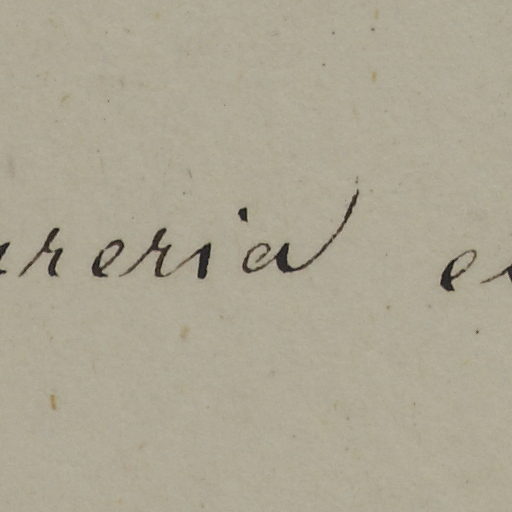 ureria e